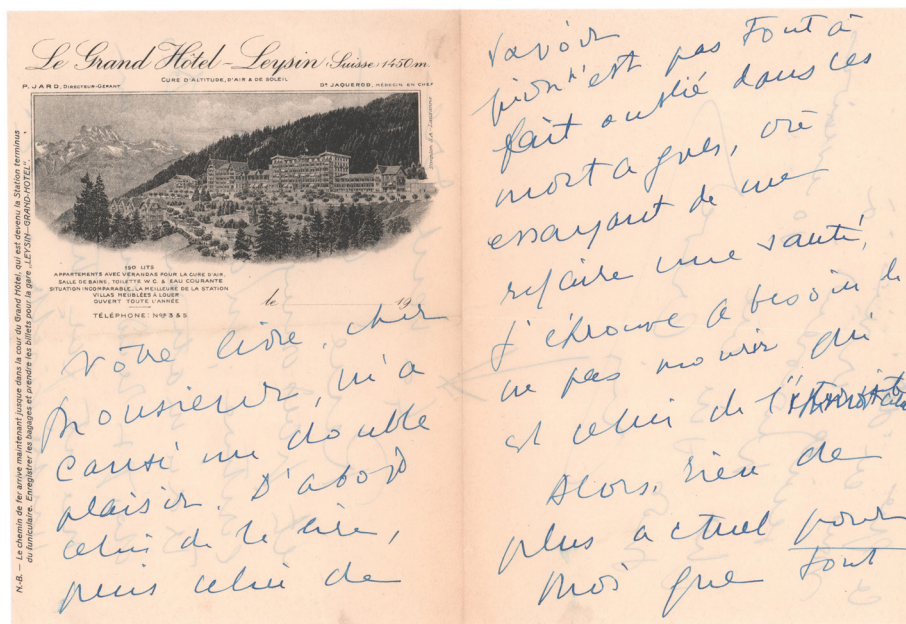 Le Grand Hôtel - Leysin (Suisse) 1450 m.
CURE D'ALTITUDE, D'AIR & DE SOLEIL
P. JARD, DIRECTEUR-GÉRANT
Dr JAQUEROD, MÉDECIN EN CHEF
190 LITS
APPARTEMENTS AVEC VÉRANDAS POUR LA CURE D'AIR,
SALLE DE BAINS, TOILETTE W.C. & EAU COURANTE
SITUATION INCOMPARABLE, LA MEILLEURE DE LA STATION
VILLAS MEUBLÉES A LOUER
OUVERT TOUTE L'ANNÉE
TÉLÉPHONE: Nos 3 & 5
le 19
N.-B. — Le chemin de fer arrive maintenant jusque dans la cour du Grand Hôtel, qui est devenu la Station terminus
du funiculaire. Enregistrer les bagages et prendre les billets pour la gare „LEYSIN-GRAND-HOTEL".
Votre livre, cher
Monsieur, m'a
causé un double
plaisir. D'abord
celui de le lire,
puis celui de
savoir
qu'on n'est pas tout à
fait oublié dans ces
montagnes, où
essayant de me
refaire une santé,
j'éprouve le besoin de
ne pas mourir qui
est celui de l'
Alors, rien de
plus actuel pour
moi que tout